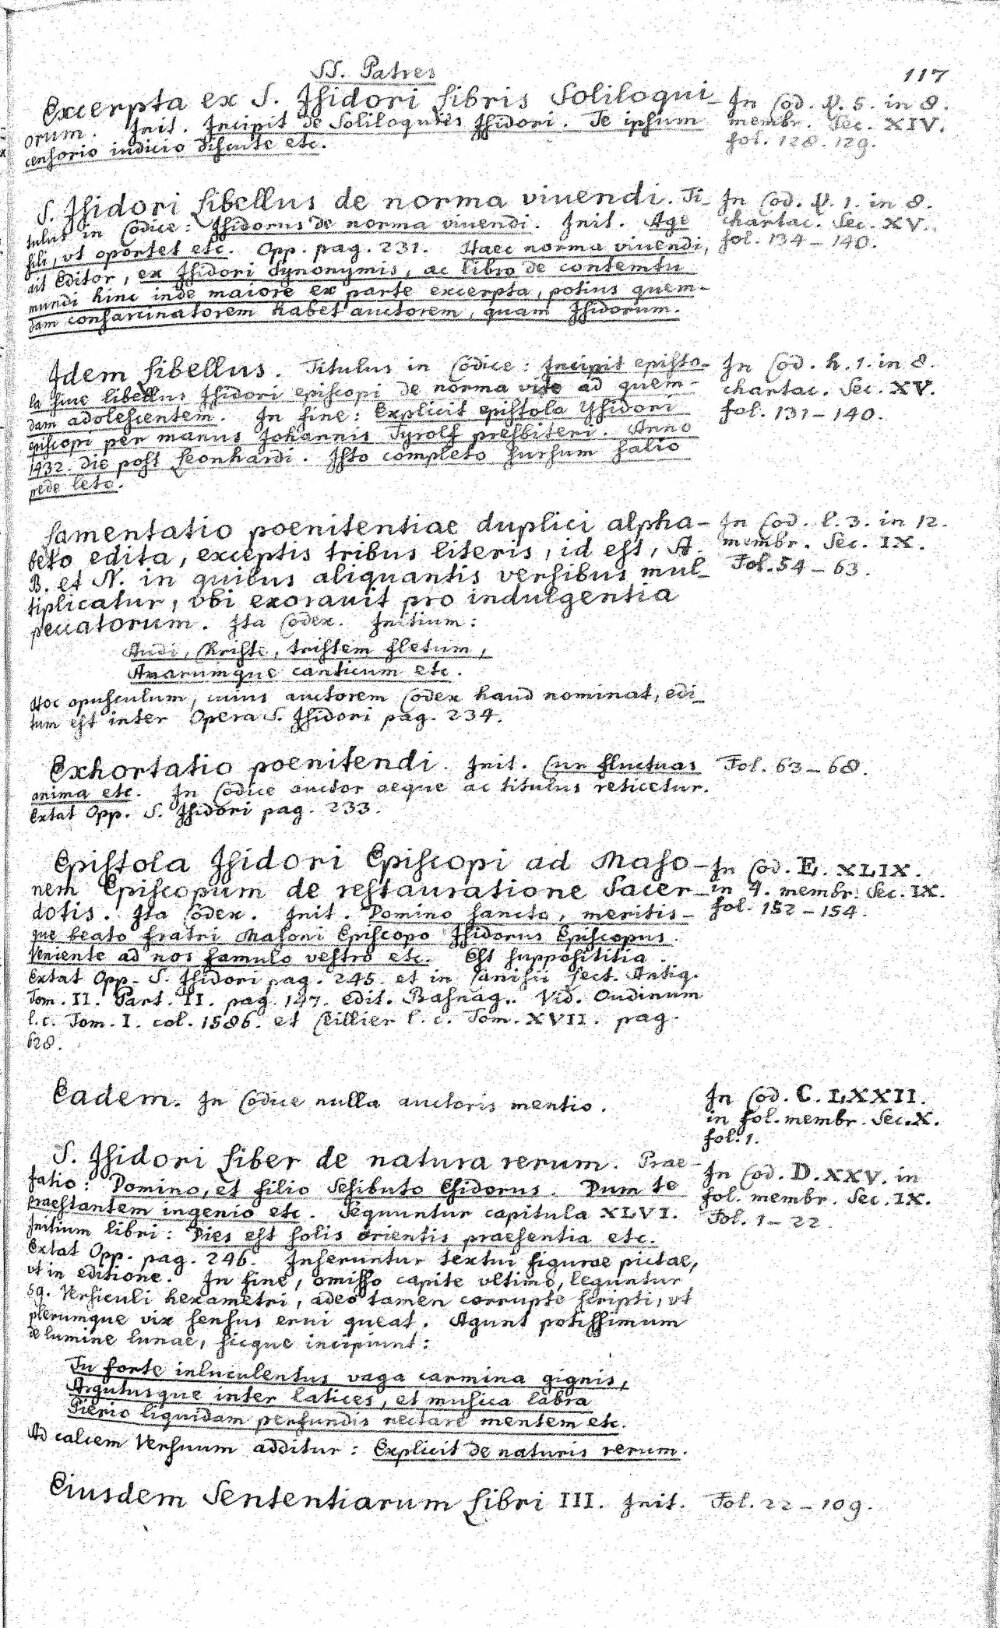 SS. Patres
117
Excerpta ex S. Isidori Libris Soliloqui-
orum. Init. Incipit de Soliloquiis Isidori. Te ipsum
censorio iudicio discute etc.
In Cod. q. 5. in 8.
membr. Sec. XIV.
fol. 128. 129.
S. Isidori Libellus de norma viuendi. Ti-
tulus in Codice: Isidorus de norma viuendi. Init. Age
fili, vt oportet etc. Opp. pag. 231. Haec norma viuendi,
ait Editor, ex Isidori Synonymis, ac libro de contemtu
mundi hinc inde maiore ex parte excerpta, potius quem-
dam consarcinatorem habet auctorem, quam Isidorum.
In Cod. q. 1. in 8.
chartac. Sec. XV.
fol. 134-140.
Idem Libellus. Titulus in Codice: Incipit episto-
la siue libellus Isidori episcopi de norma vite ad quem-
dam adolescentem. In fine: Explicit epistola Ysidori
episcopi per manus Johannis Tyrolf presbiteri. Anno
1432. die post Leonhardi. Isto completo sursum salio
pede leto.
In Cod. h. 1. in 8.
chartac. Sec. XV.
fol. 131-140.
Lamentatio poenitentiae duplici alpha-
beto edita, exceptis tribus literis, id est, A.
B. et N. in quibus aliquantis versibus mul-
tiplicatur, vbi exorauit pro indulgentia
peccatorum. Ita Codex. Initium:
Audi, Christe, tristem fletum,
Amarumque canticum etc.
Hoc opusculum, cuius auctorem Codex haud nominat, edi-
tum est inter Opera S. Isidori pag. 234.
In Cod. l. 3. in 12.
membr. Sec. IX.
Fol. 54-63.
Exhortatio poenitendi. Init. Cur fluctuas
anima etc. In Codice auctor aeque ac titulus reticetur.
Extat Opp. S. Isidori pag. 233.
Fol. 63-68.
Epistola Isidori Episcopi ad Maso-
nem Episcopum de restauratione Sacer-
dotis. Ita Codex. Init. Domino sancto, meritis-
que beato fratri Masoni Episcopo Isidorus Episcopus.
Veniente ad nos famulo vestro etc. Est supposititia.
Extat Opp. S. Isidori pag. 245. et in Canisii Lect. Antiq.
Tom. II. Part. II. pag. 147. edit. Basnag. Vid. Oudinum
l. c. Tom. I. col. 1586. et Ceillier l. c. Tom. XVII. pag.
628.
In Cod. E. XLIX.
in 4. membr. Sec. IX.
fol. 152-154.
Eadem. In Codice nulla auctoris mentio.
In Cod. C. LXXII.
in fol. membr. Sec. X.
fol. 1.
S. Isidori Liber de natura rerum. Prae-
fatio: Domino, et filio Sesibuto Esidorus. Dum te
praestantem ingenio etc. Sequuntur capitula XLVI.
Initium libri: Dies est solis orientis praesentia etc.
Extat Opp. pag. 246. Inseruntur textui figurae pictae,
vt in editione. In fine, omisso capite vltimo, leguntur
59. Versiculi hexametri, adeo tamen corrupte scripti, vt
plerumque vix sensus erui queat. Agunt potissimum
de lumine lunae, sicque incipiunt:
Tu forte inluculentus vaga carmina gignis,
Argutusque inter latices, et musica labra
Pierio liquidam perfundis nectare mentem etc.
Ad calcem Versuum additur: Explicit de naturis rerum.
In Cod. D. XXV. in
fol. membr. Sec. IX.
Fol. 1-22.
Eiusdem Sententiarum Libri III. Init.
Fol. 22-109.